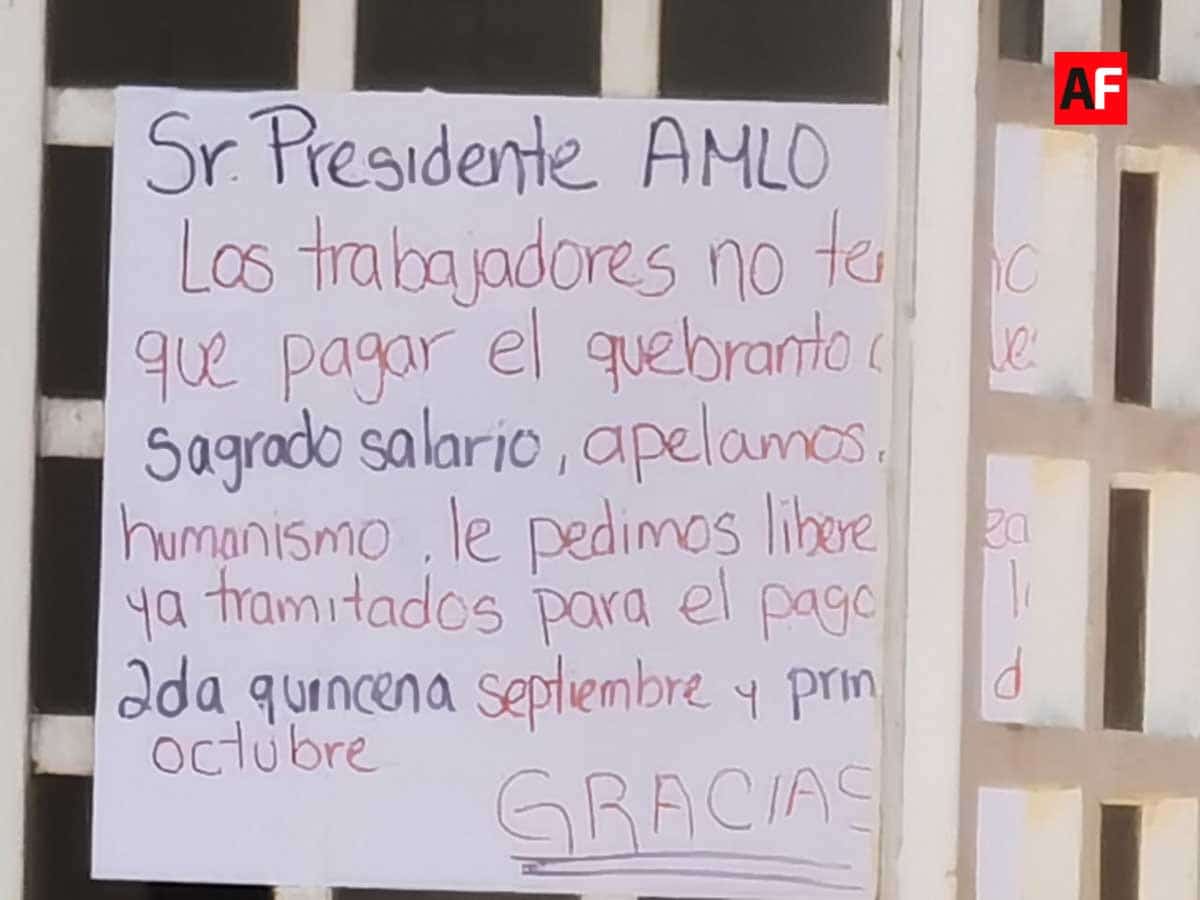 AF
Sr. Presidente AMLO
Los trabajadores no
que pagar el quebranto
sagrado salario, apelamos
humanismo, le pedimos libere
ya tramitados para el pago
2da quincena septiembre y
octubre
GRACIAS